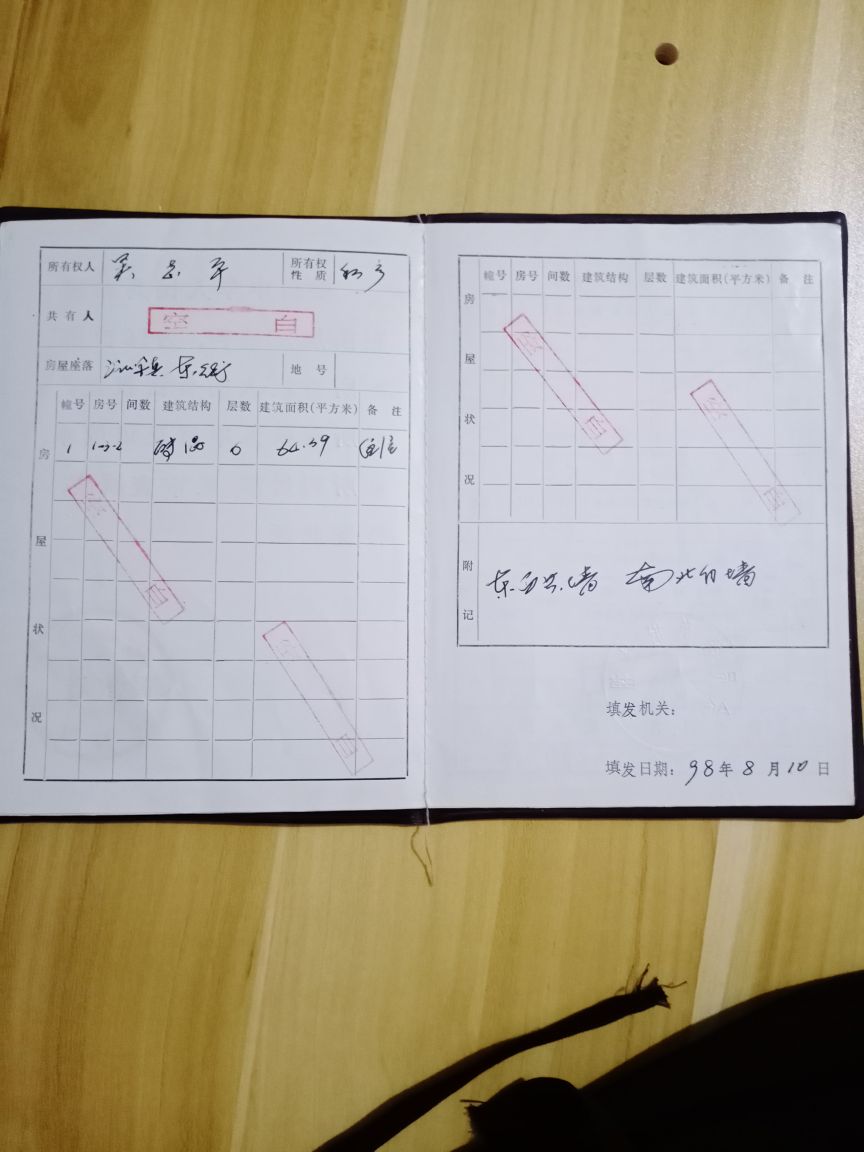 所有权人 吴 平 所有权性质 私产
共有人 空 白
房屋座落 东 街 地号
房屋状况
幢号 房号 间数 建筑结构 层数 建筑面积(平方米) 备注
1 1-3-2 砖混 6 64.39 住
空 白
空 白
房屋状况
幢号 房号 间数 建筑结构 层数 建筑面积(平方米) 备注
空 白
空 白
附记
东西共墙 南北自墙
填发机关:
填发日期: 98年8月10日